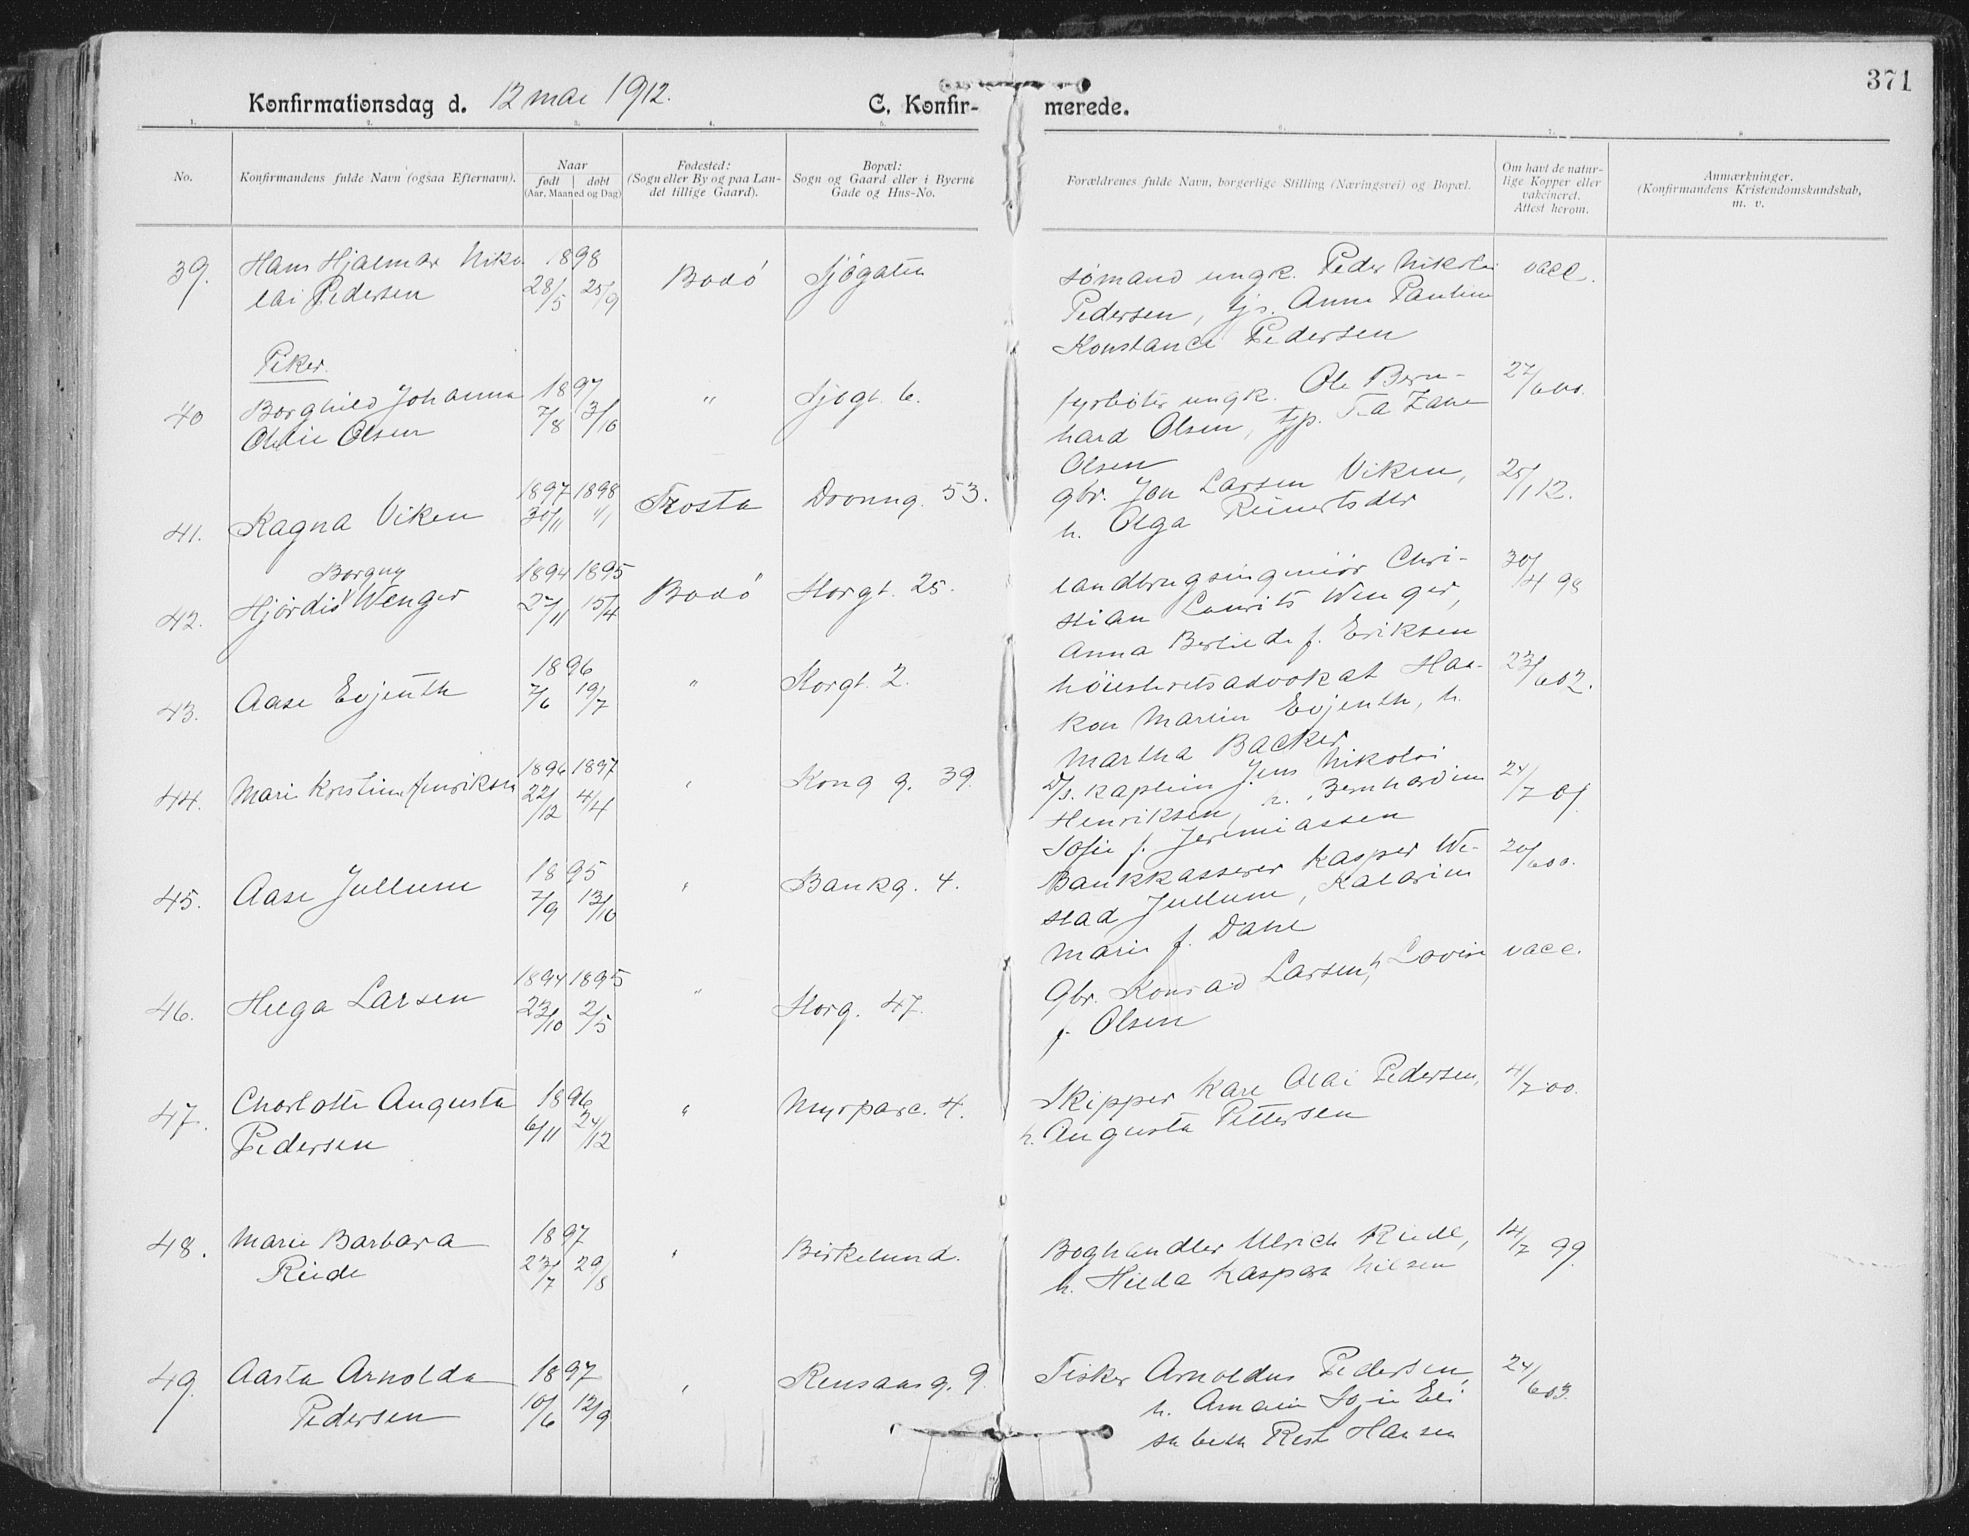 371
Konfirmationsdag d. 12 mai 1912. C. Konfir- merede.
1. 2. 3. 4. 5. 6. 7. 8.
No.
Konfirmandens fulde Navn (ogsaa Efternavn).
Naar
født døbt
(Aar, Maaned og Dag)
Fødested:
(Sogn eller By og paa Lan-
det tillige Gaard).
Bopæl:
Sogn og Gaard eller i Byerne
Gade og Hus-No.
Forældrenes fulde Navn, borgerlige Stilling (Næringsvei) og Bopæl.
Om havt de natur-
lige Kopper eller
vakcineret.
Attest herom.
Anmærkninger.
(Konfirmandens Kristendomskundskab,
m. v.
39. Hans Hjalmar Niko 1898 Bodö Sjøgaten sømand ungk. Peder Nikolai vacc.
lai Pedersen 28/5 25/9 Pedersen, tjp. Anna Pauline
Konstance Pedersen
Piker.
40 Borghild Johanna 1897 " Sjøgt. 6. fyrbøter ungk. Ole Bern- 27/6 00.
Olsen 7/8 3/10 hard Olsen, tjp.
Olsen
41. Ragna Viken 1897 1898 Dronng. 53. gbr. Jon Larsen Viken, 25/1 12.
30/11 h. Olga Reinertsdtr
Borgny
42. Hjördis Wenger 1894 1895 Bodö Storgt. 25. landbrugsingeniör Chri- 30/4 98
27/11 15/4 stian Laurits Wenger,
Anna f. Eriksen
43. Aase Evjenth 1896 " Storgt. 2. höiesteretsadvokat Haa- 23/6 02.
7/6 19/7 kon Martin Evjenth, h.
Martha Backer
44. Mari Kristine Henriksen 1896 1897 " Kong g. 39. D/s. kaptein Jens Nikolai 24/7 01
22/12 4/4 Henriksen, h. Bernhardine
Sofie f. Jeremiassen
45. Aase Jullum 1895 " Bankg. 4. Bankkasserer Kasper We- 20/6 00.
7/9 13/10 stad Jullum, Katarine
Marie f. Dahl
46. Helga Larsen 1894 1895 " Storg. 47. Gbr. Konrad Larsen, h. Lovise vacc.
23/10 2/5 f. Olsen
47. Charlotte Augusta 1896 " Myrparc. 4. Skipper Karl Olai Pedersen, 4/7 00.
Pedersen 6/11 24/12 h. Augusta Pettersen
48. Marie Barbara 1897 " Birkelund. Boghandler Ulrich Riede, 14/7 99.
Riede 23/7 29/8 h. Hilda Kaspara Nilsen
49. Aasta Arnolda 1897 " Rensaasg. 9. Fisker Arnoldus Pedersen, 24/6 03
Pedersen 10/6 12/9 h. Amalie Sofie Eli
sabeth Rist Hansen